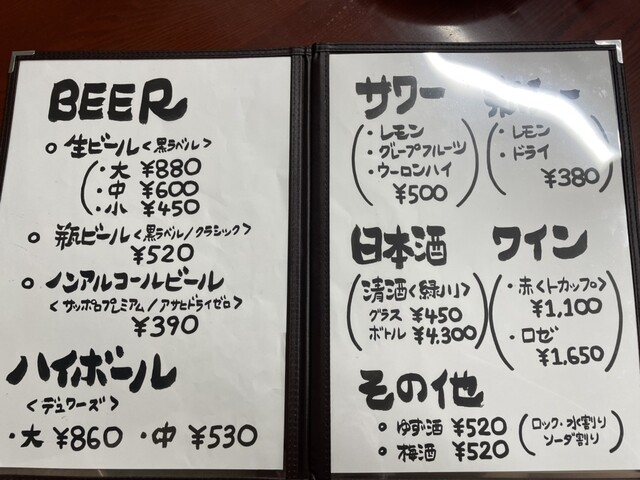 BEER
○ 生ビール<黒ラベル>
・大 ¥880
・中 ¥600
・小 ¥450
○ 瓶ビール<黒ラベル/クラシック>
¥520
○ ノンアルコールビール
<サッポロプレミアム/アサヒドライゼロ>
¥390
ハイボール
<デュワーズ>
・大 ¥860 ・中 ¥530
サワー
・レモン
・グレープフルーツ
・ウーロンハイ
¥500
・レモン
・ドライ
¥380
日本酒
清酒<緑川>
グラス ¥450
ボトル ¥4,300
ワイン
・赤<トカップ>
¥1,100
・ロゼ
¥1,650
その他
○ ゆず酒 ¥520
○ 梅酒 ¥520
(ロック・水割り
ソーダ割り)